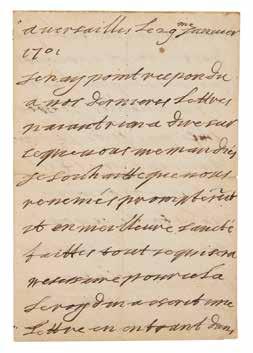 a versailles le 29me Janvier
1701
Je nay point respondu
a vos dernieres lettres
nayant rien a dire sur
ce que vous me mandiés
je souhaitte que vous
revenés promptem̃t
et en meilleure santé
faittes tout ce quisera
necessaire pour cela
le roy a escrit une
lettre en entrant dans